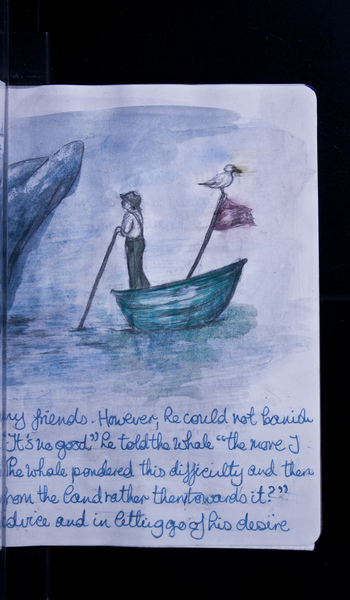 my friends. However, he could not banish
"It's no good" he told the whale "the more I
The whale pondered this difficulty and then
from the land rather then towards it?"
advice and in letting go of his desire